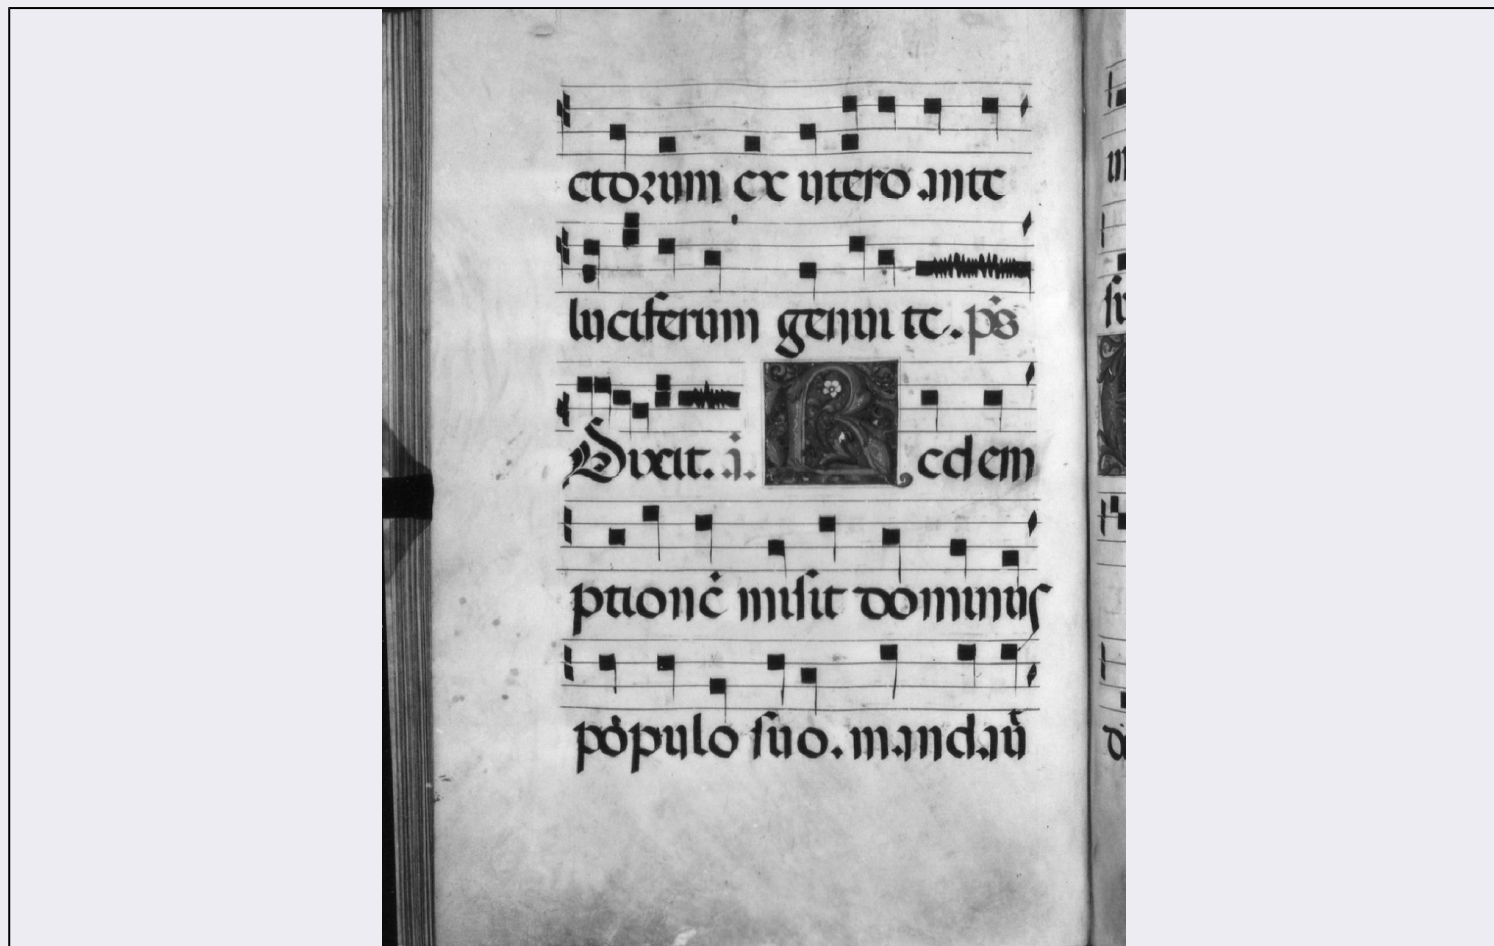 ctorum ex utero ante
luciferum genui te. ps
Dixit. i. Redem
ptionē misit dominus
populo suo. mandaū